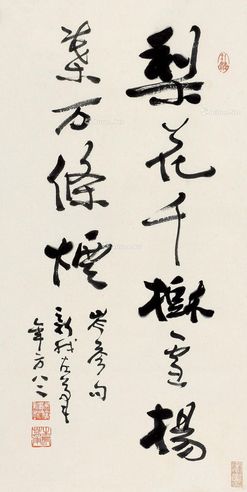 梨花千樹雪楊
葉万條煙
岑參句
新我左筆
年方八二